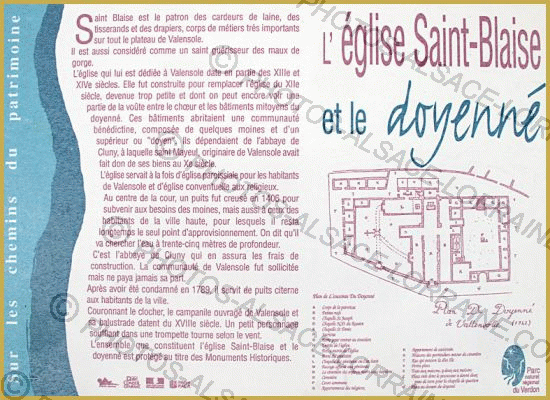 Sur les chemins du patrimoine
Saint Blaise est le patron des cardeurs de laine, des
tisserands et des drapiers, corps de métiers très importants
sur tout le plateau de Valensole.
Il est aussi considéré comme un saint guérisseur des maux de
gorge.
L'église qui lui est dédiée à Valensole date en partie des XIIIe et
XIVe siècles. Elle fut construite pour remplacer l'église du XIIe
siècle, devenue trop petite et dont on peut encore voir une
partie de la voûte entre le chœur et les bâtiments mitoyens du
doyenné. Ces bâtiments abritaient une communauté
bénédictine, composée de quelques moines et d'un
supérieur ou "doyen", ils dépendaient de l'abbaye de
Cluny, à laquelle saint Mayeul, originaire de Valensole avait
fait don de ses biens au Xe siècle.
L'église servait à la fois d'église paroissiale pour les habitants
de Valensole et d'église conventuelle aux religieux.
Au centre de la cour, un puits fut creusé en 1406 pour
subvenir aux besoins des moines, mais aussi à ceux des
habitants de la ville haute, pour lesquels il resta
le seul point d'approvisionnement. On dit qu'il
va chercher l'eau à trente-cinq mètres de profondeur.
C'est l'abbaye de Cluny qui en assura les frais de
construction. La communauté de Valensole fut sollicitée
mais ne paya jamais sa part.
Après avoir été condamné en 1789, il servit de puits citerne
aux habitants de la ville.
Couronnant le clocher, le campanile ouvragé de Valensole et
sa balustrade datent du XVIIIe siècle. Un petit personnage
soufflant dans une trompette tourne selon le vent.
L'ensemble que constituent l'église Saint-Blaise et le
doyenné est protégé au titre des Monuments Historiques.
L'église Saint-Blaise
et le doyenné
Plan Du Doyenné
de Valensole
Plan de l'Enceinte Du Doyenné
Parc
naturel
régional
du Verdon
© PHOTOS-ALSACE-LORRAINE.COM